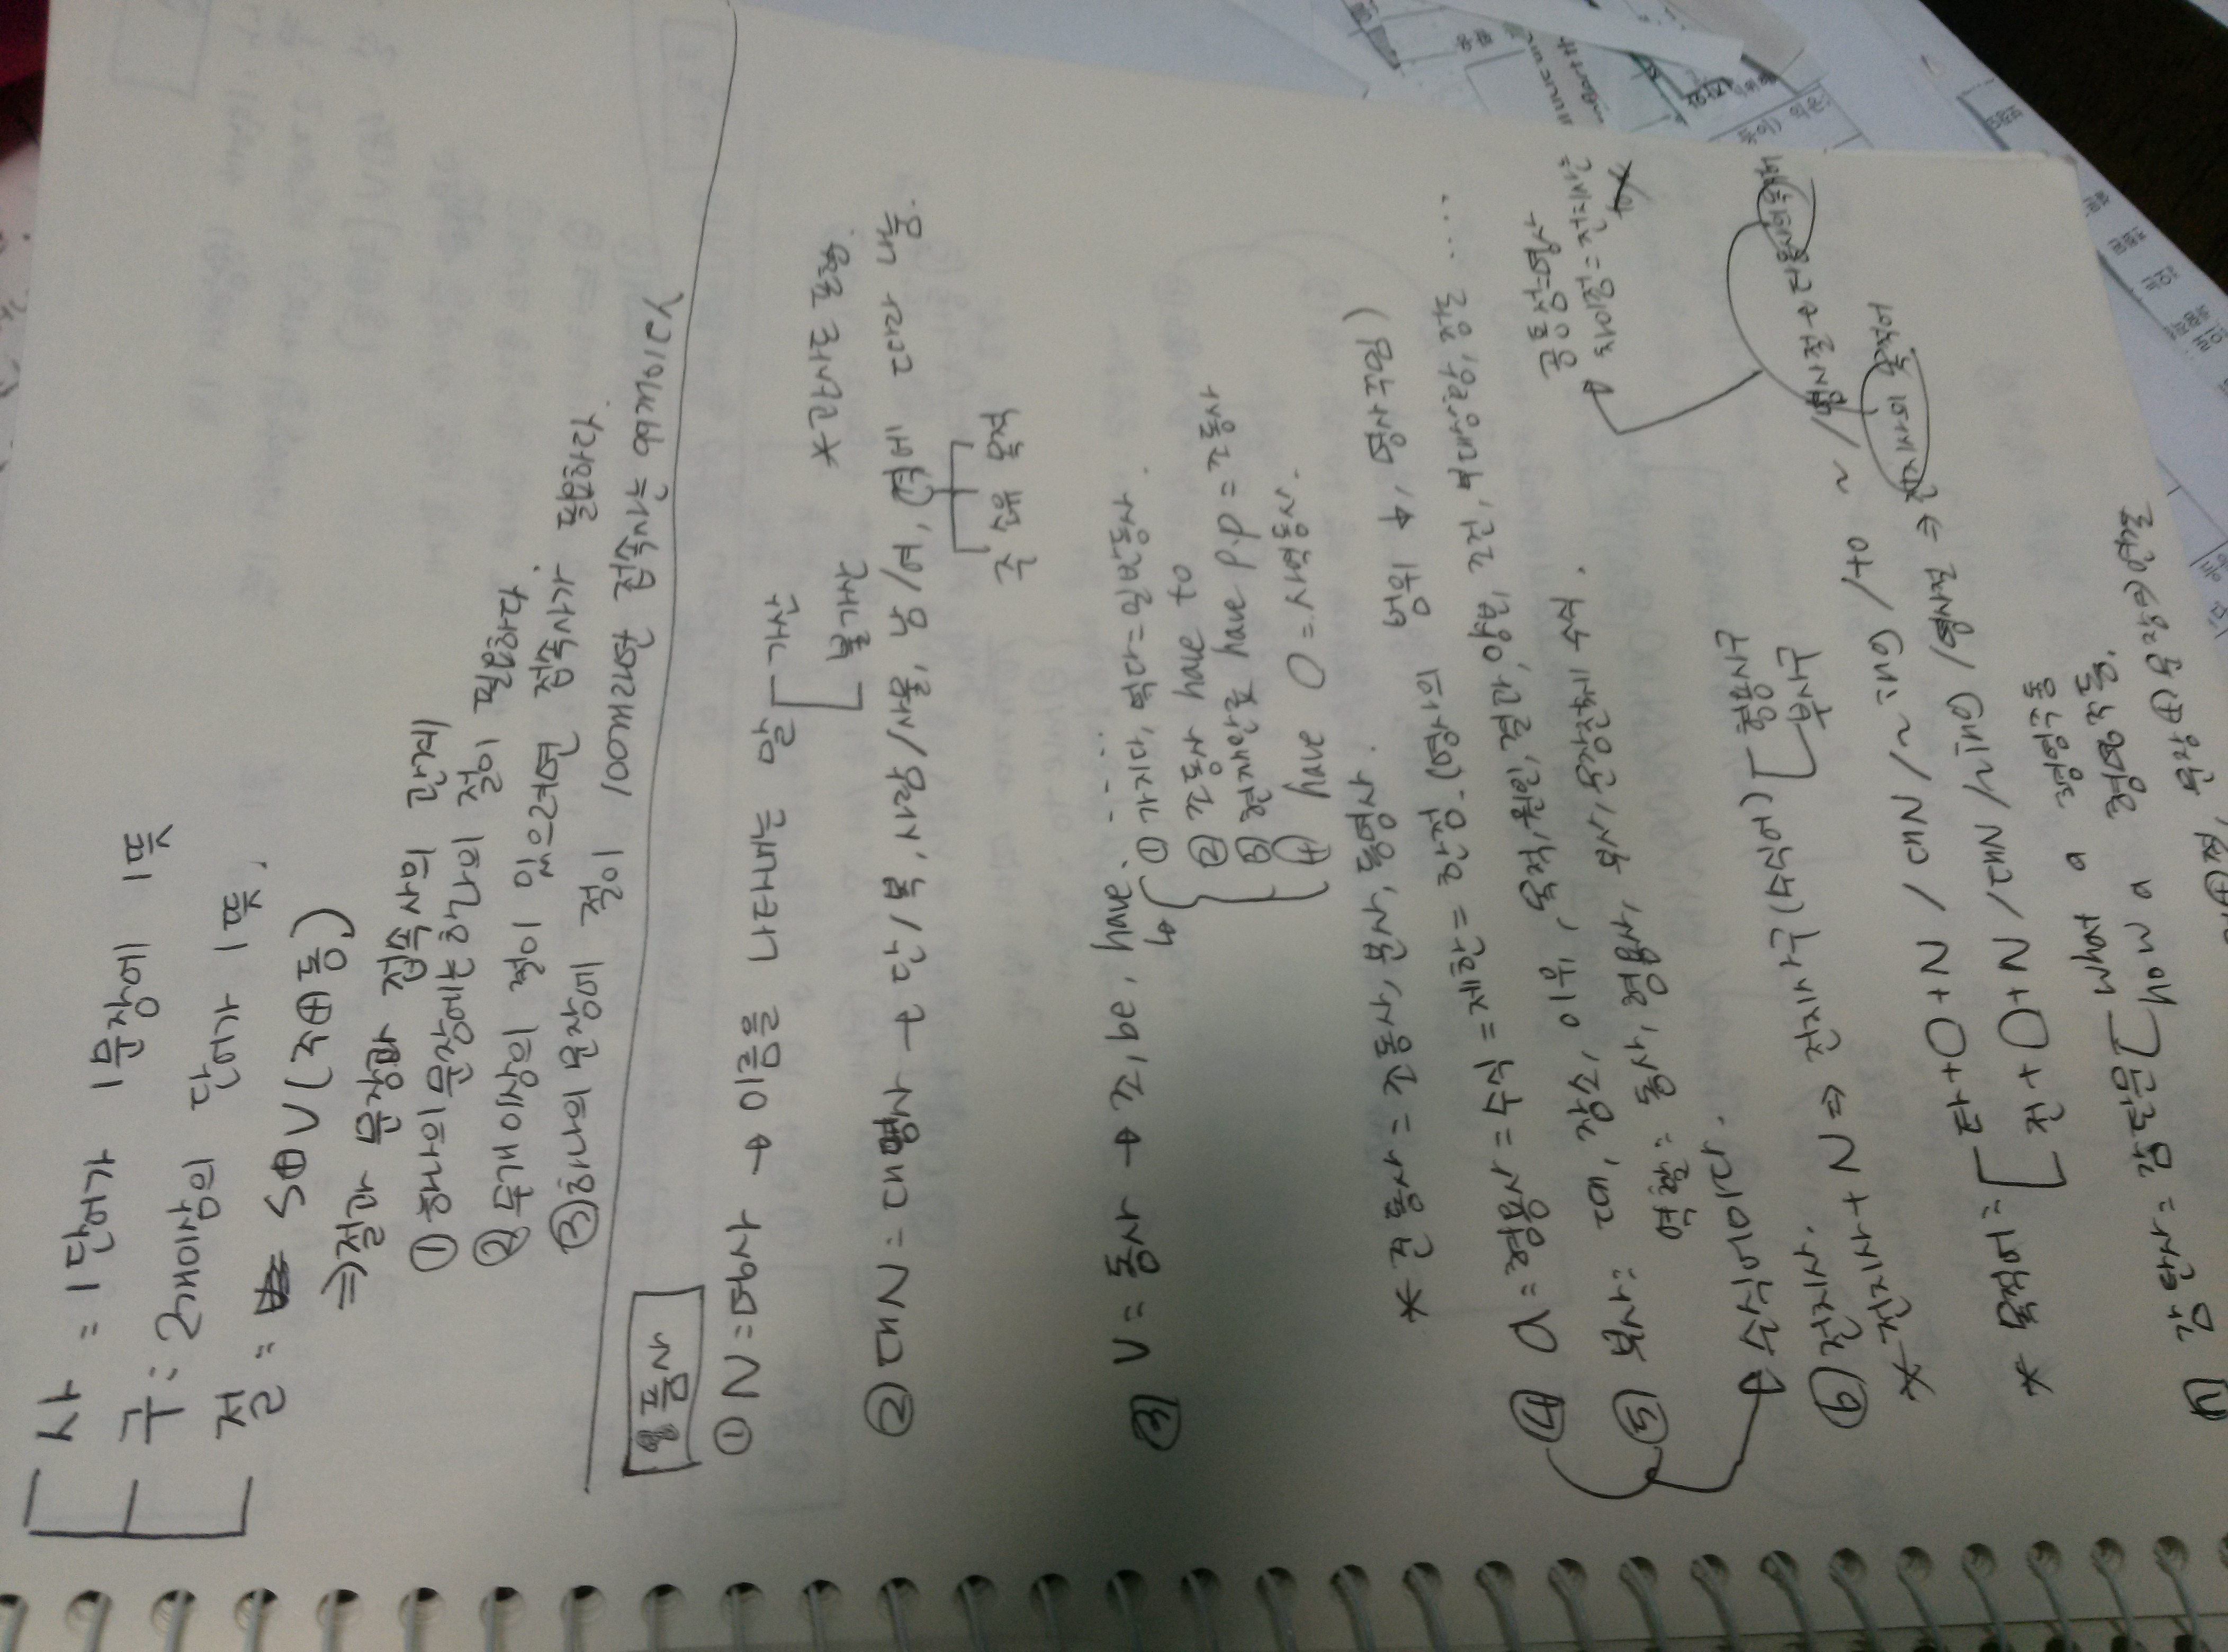 사 = 1단어가 1문장에 1뜻
구 : 2개이상의 단어가 1뜻.
절 = S⊕V (주⊕동)
⇒절과 문장과 접속사의 관계
① 하나의 문장에는 한간의 절이 필요하다
② 두개이상의 절이 있으려면 접속사가 필요하다
③ 하나의 문장에 절이 100개라면 접속사는 99개이다
품사
① N = 명사 → 이름을 나타내는 말
가산
불가산
*
② 대N = 대명사 → 단/복, 사람/사물, 남/여,
주 소유 목적
③ V = 동사 → 조, be, have. - - -
① 가지다, 먹다 = 일반동사
② 조동사 have to
③ 현재완료 have p.p = 조동사
④ have O = 사역동사.
* 준동사 = 조동사, 분사, 동명사.
④ a = 형용사 = 수식 = 제한 = 한정 (명사의 범위 ↓, 명사수식)
⑤ 부사 : 때, 장소, 이유, 목적, 원인, 결과, 양보, 조건, 부대상황, 강조 ....
역할 : 동사, 형용사, 부사, 문장전체 수식.
수식어이다.
⑥ 전치사.
* 전치사 + N ⇒ 전치사구 (수식어)
형용사구
부사구
* 목적어 :
타 + O + N / 대N / ~ing / to ~ / 명사절 →
전 + O + N / 대N / ~ing / 명사절 ⇒ 전치사의 목적어
⑦ 감탄사 = 감탄문
what a 형명주동
how a 형명주동.